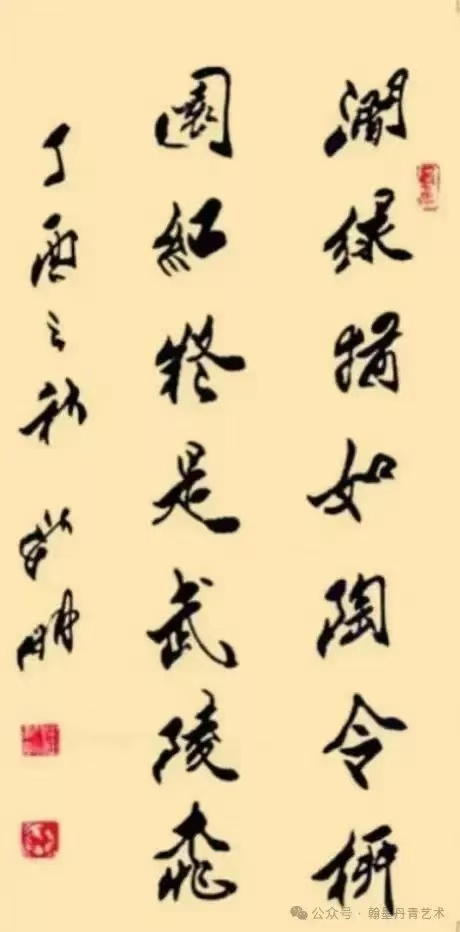 澗緑猶如陶令柳
園紅疑是武陵桃
丁酉之秋
公众号 · 翰墨丹青艺术